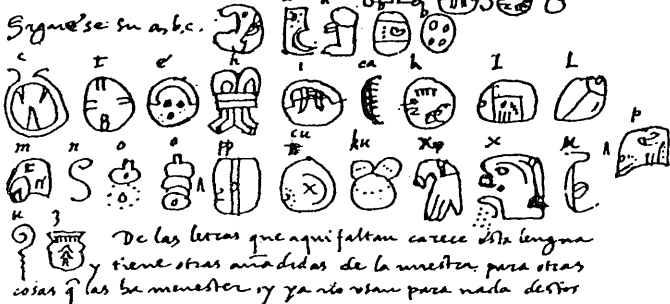 Siguese su a, b, c. b
c t é h i ca k l L
m n o o pp cu ku x x u p
u z De las letras que aqui faltan carece esta lengua
y tiene otras añadidas de la nuestra para otras
cosas q̃ las ha menester, y ya no usan para nada destos